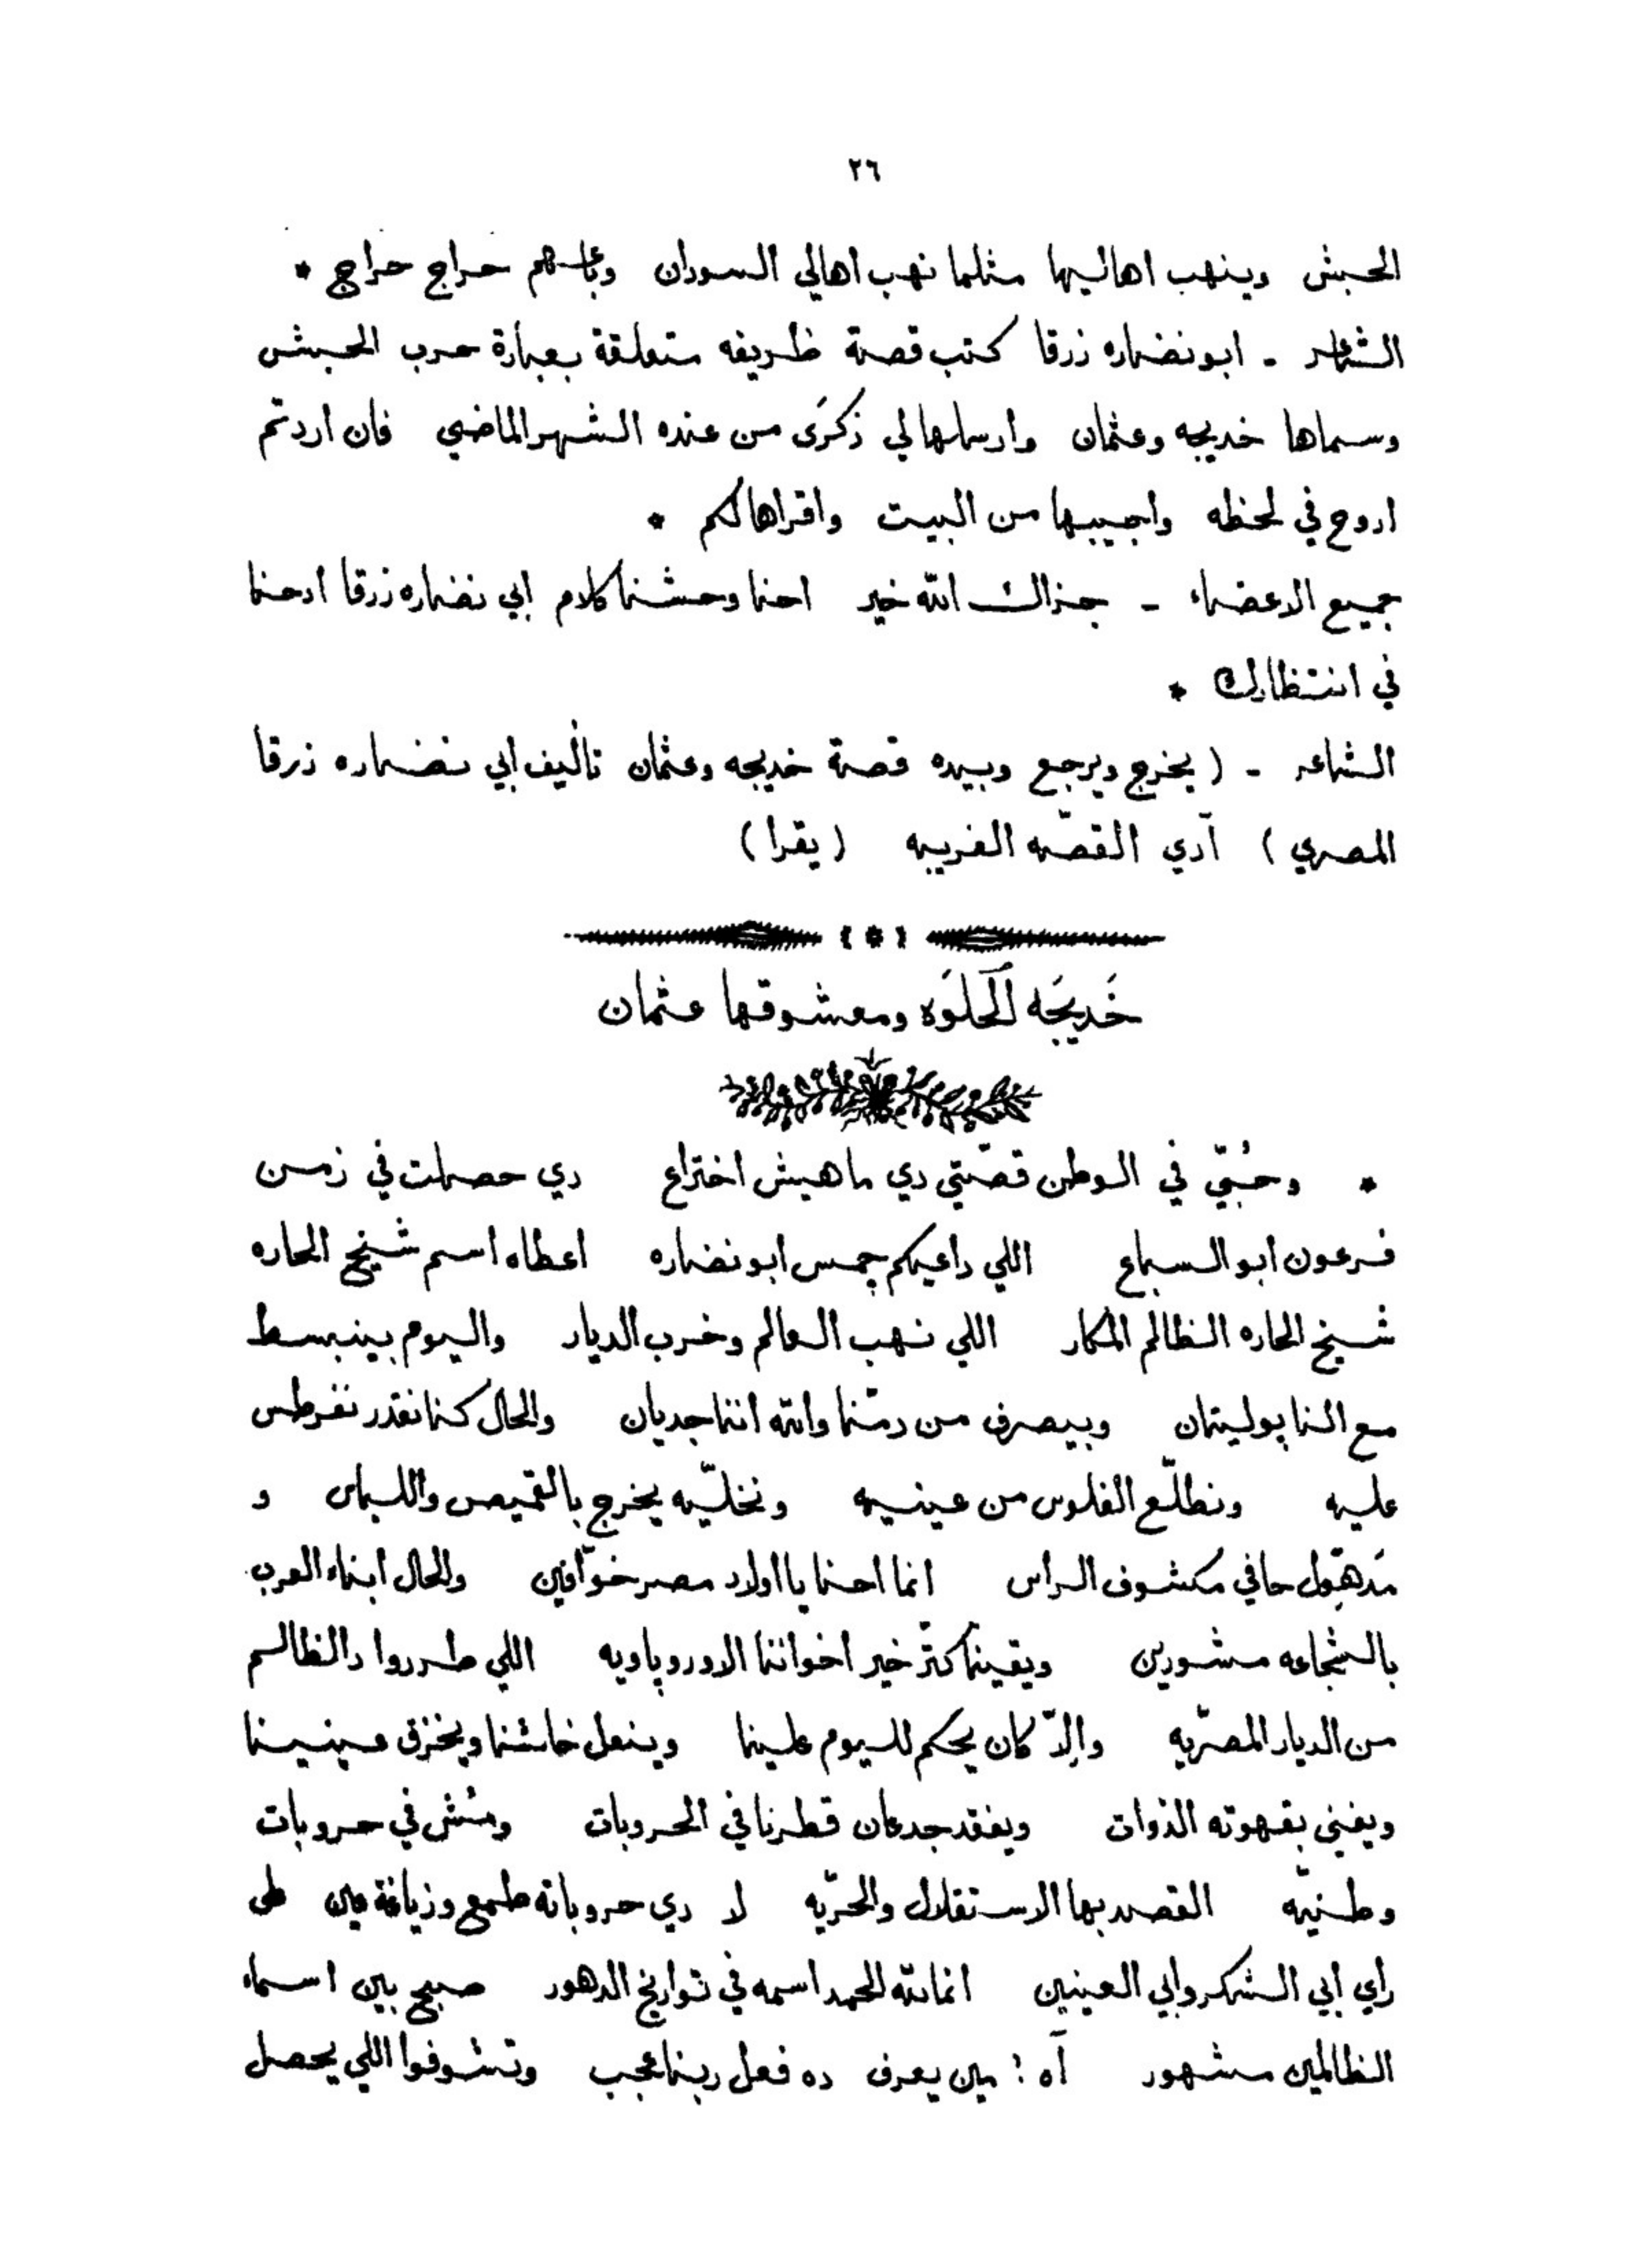 ٢٦
الحبش وينهب اهاليها مثلما نهب اهالي السودان وباعهم حراج حراج *
الشاعر - ابو نضاره زرقا كتب قصة ظريفه متعلقة بعبارة حرب الحبش
وسماها خديجه وعثمان وارسلها لي ذكرَى من عنده الشهر الماضي فان اردتم
اروح في لحظه واجيبها من البيت واقراها لكم *
جميع الاعضاء - جزاك الله خير احنا وحشنا كلام ابي نضاره زرقا ادحنا
في انتظارك *
الشاعر - (يخرج ويرجع وبيده قصة خديجه وعثمان تأليف ابي نضاره زرقا
المصري) آدي القصّه الغريبه (يقرا)
خَديجَه الحَلوَه ومعشوقها عثمان
* وحُبّي في الوطن قصّتي دي ماهيش اختراع دي حصلت في زمن
فرعون ابو السباع اللي داعيكم جمس ابو نضاره اعطاه اسم شيخ الحاره
شيخ الحاره الظالم المكار اللي نهب العالم وخرب الديار واليوم بينبسط
مع النابوليتان وبيصرف من دمّنا والله اننا جديان والحال كنا نقدر نفرطس
عليه ونطلّع الفلوس من عينيه ونخلّيه يخرج بالقميص واللباس و
مَدهّول حافي مكشوف الراس انما احنا يا اولاد مصر خوّافين والحال ابناء العرب
بالشجاعه مشهورين ويقينًا كتّر خير اخواننا الاوروپاويه اللي طردوا دالظالم
من الديار المصريّه والاّ كان يحكم لليوم علينا وينعل خاشنا ويخزق عينينا
ويفني بقهوته الذوات ويفقد جدعان قطرنا في الحروبات ومُش في حروبات
وطنيّه القصد بها الاستقلال والحرّيه لا دي حروباته طمع وزيافة عين على
رأي ابي الشكر وابي العينين انما لله الحمد اسمه في تواريخ الدهور صبح بين اسماء
الظالمين مشهور آه ! مين يعرف ده فعل ربنا عجب وتشوفوا اللي يحصل